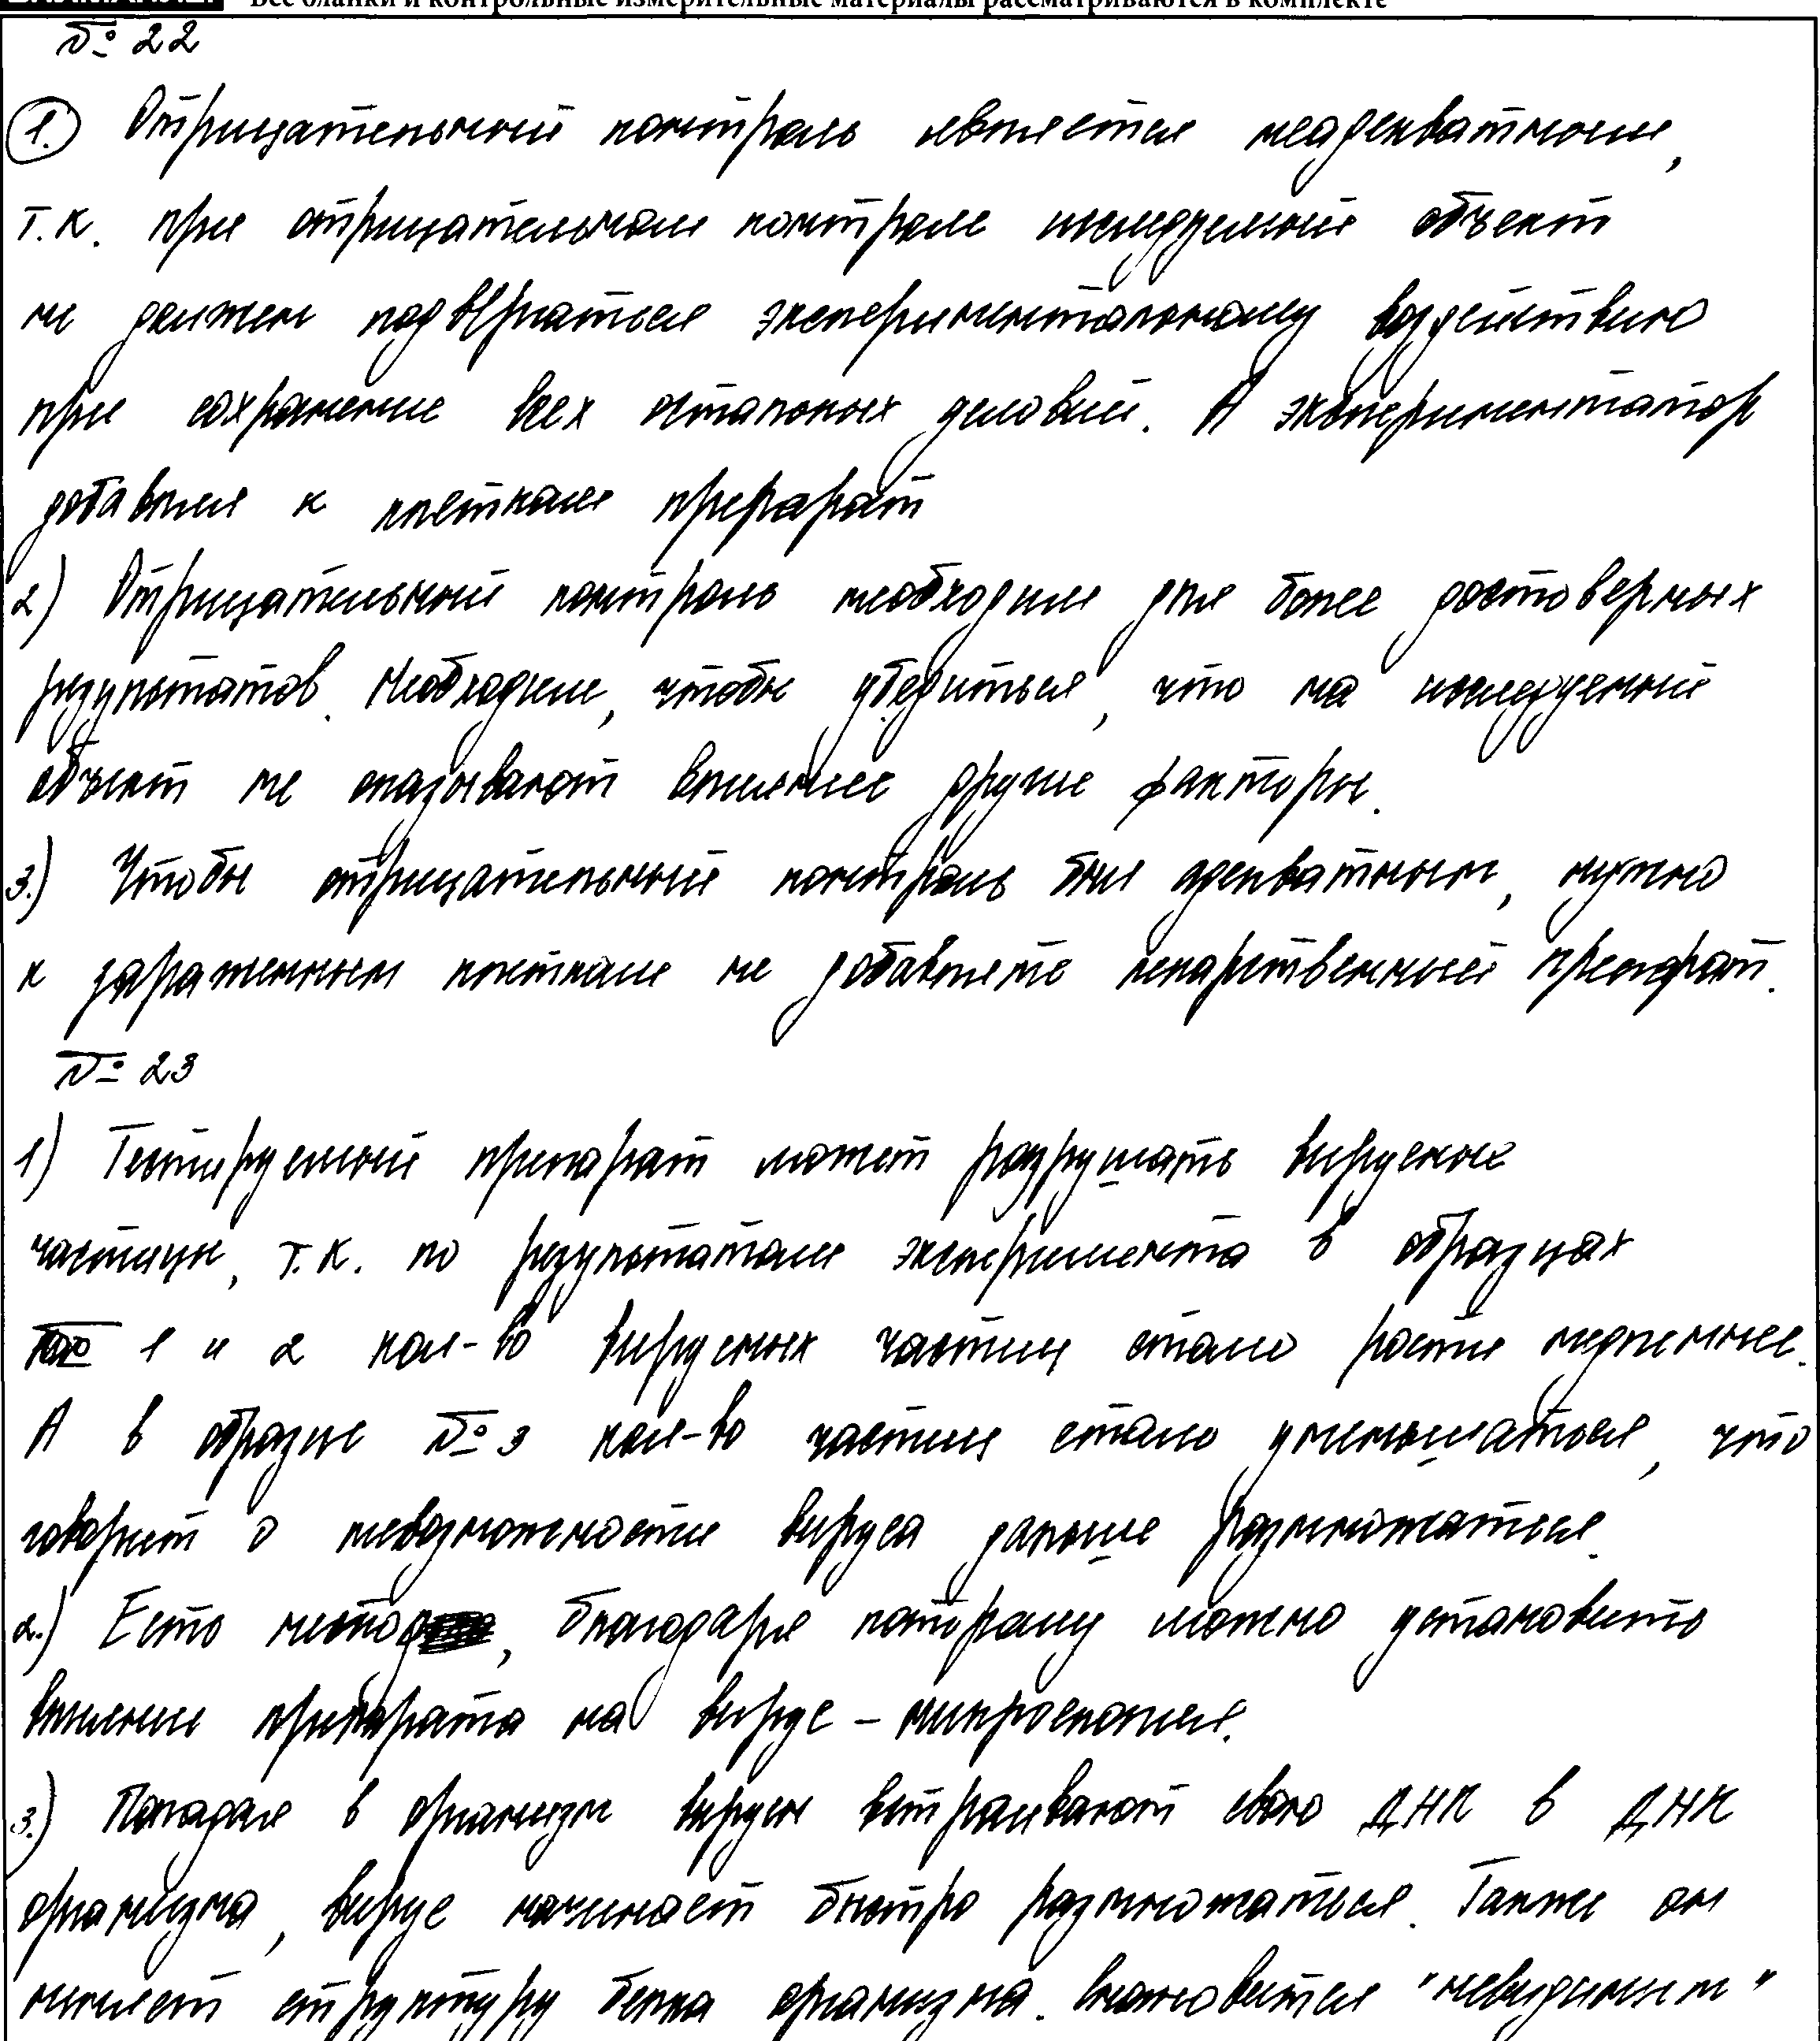 Все бланки и контрольные измерительные материалы рассматриваются в комплекте
№ 22
1. Отрицательный контроль является неадекватным,
т.к. при отрицательном контроле исследуемый объект
не должен подвергаться экспериментальному воздействию
при сохранение всех остальных условий. А экспериментатор
добавил к клеткам препарат
2) Отрицательный контроль необходим для более достоверных
результатов. Необходим, чтобы убедиться, что на исследуемый
объект не оказывают влияние другие факторы.
3.) Чтобы отрицательный контроль был адекватным, нужно
к зараженным клеткам не добавлять лекарственный препарат.
№ 23
1) Тестируемый препарат может разрушать вирусные
частицы, т.к. по результатам эксперимента в образцах
1 и 2 кол-во вирусных частиц стало расти медленнее.
А в образце № 3 кол-во частиц стало уменьшаться, что
говорит о невозможности вируса дальше размножаться.
2.) Есть метод, благодаря которому можно установить
влияние препарата на вирус - микроскопия.
3.) Попадая в организм вирусы встраивают свою ДНК в ДНК
организма, вирус начинает быстро размножаться. Также он
меняет структуру белка организма. "невидимым"